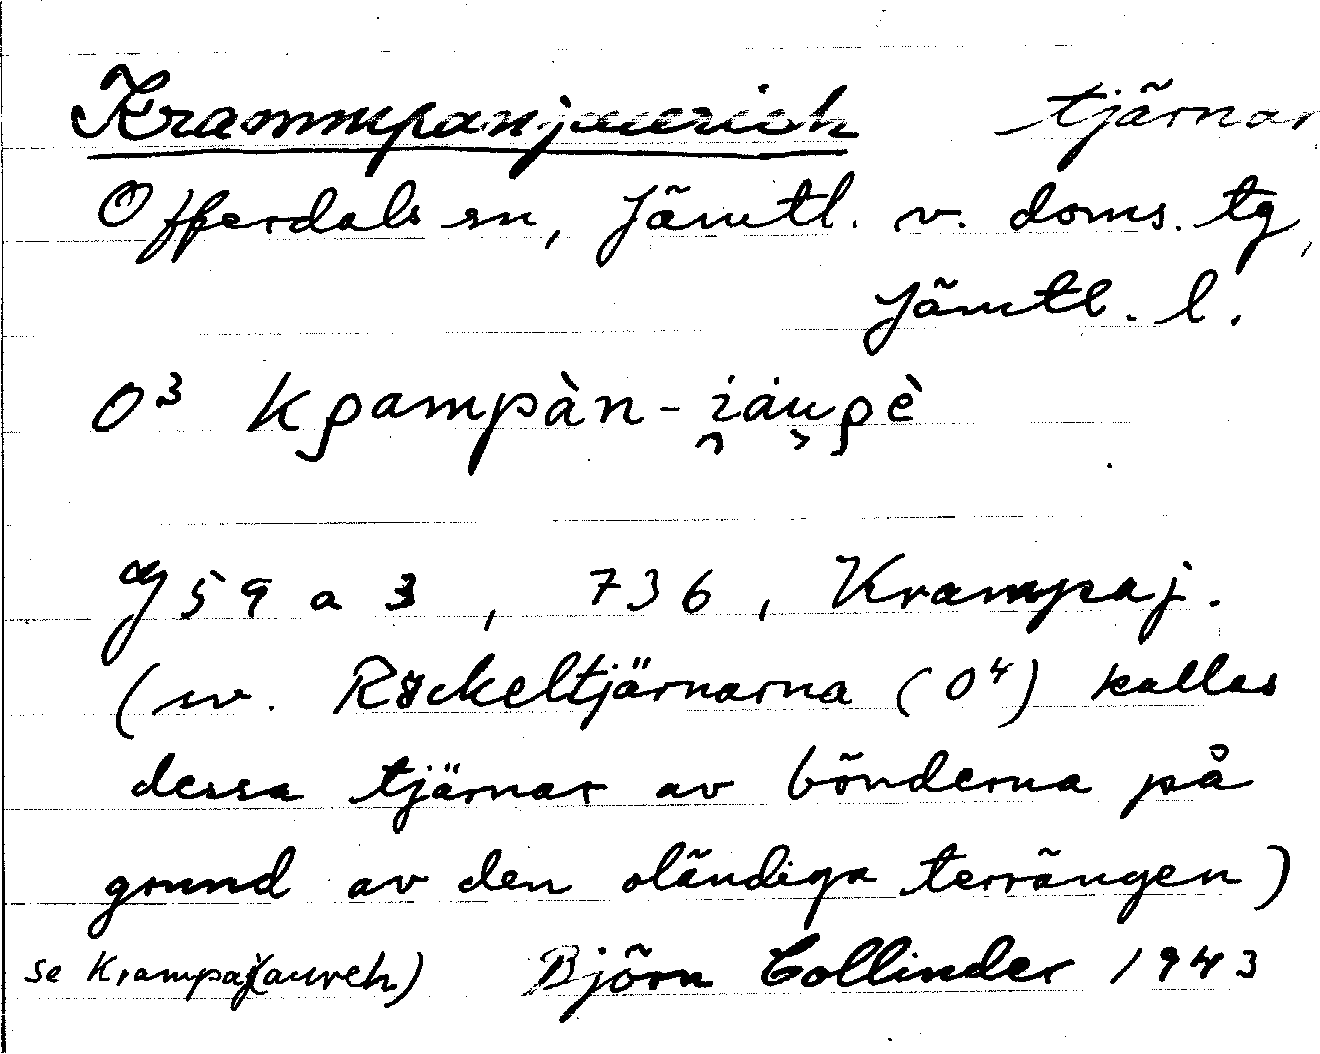 Krammpanjaureh tjärnar
Offerdals sn, Jämtl. v. doms. tg,
Jämtl. l.
O³ kρampàn-i̯au̯ρè
J 59 a 3, 736, Krampaj.
(nv. Röckeltjärnarna (O⁴) kallas
dessa tjärnar av bönderna på
grund av den oländiga terrängen)
se Krampaj(aureh) Björn Collinder 1943